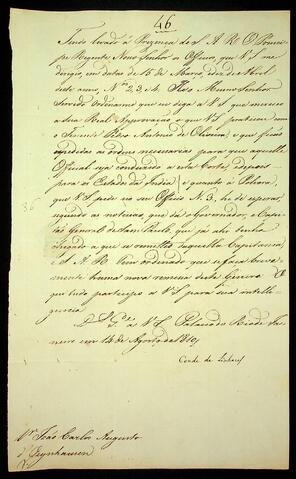 46
Tendo levado á Prezença de S A R O Princi-
pe Regente Nosso Senhor os Officios, que V S me
dirigio, em datas de 15 de Março, dez de Abril
deste anno, Nos 2, 3, e 4. He o Mesmo Senhor
Servido Ordenarme que eu diga a V S que mereceo
a Sua Real Approvação o que V S praticou com
o Tenente Antonio de Oliveira, e que ficão
expedidas as ordens necessarias para que aquelle
Official seja conduzido a esta Corte, e depois
para os Estados da India; e quanto á Polvora,
que V S pede no seu Officio N. 3, he de esperar,
segundo as noticias, que dá o Governador, e Capi-
tão General de Sam Paulo, que já ahi tenha
chegado a que se remetteo daquella Capitania,
e S A R tem ordenado que se faça breve-
mente huma nova remessa deste Genero. O
que tudo participo a V S para sua intelli-
gencia.
Ds Gde a V S Palacio do Rio de Ja-
neiro em 14 de Agosto de 1810
Conde de Linhares
Sr João Carlos Augusto
d'Oeynhausen